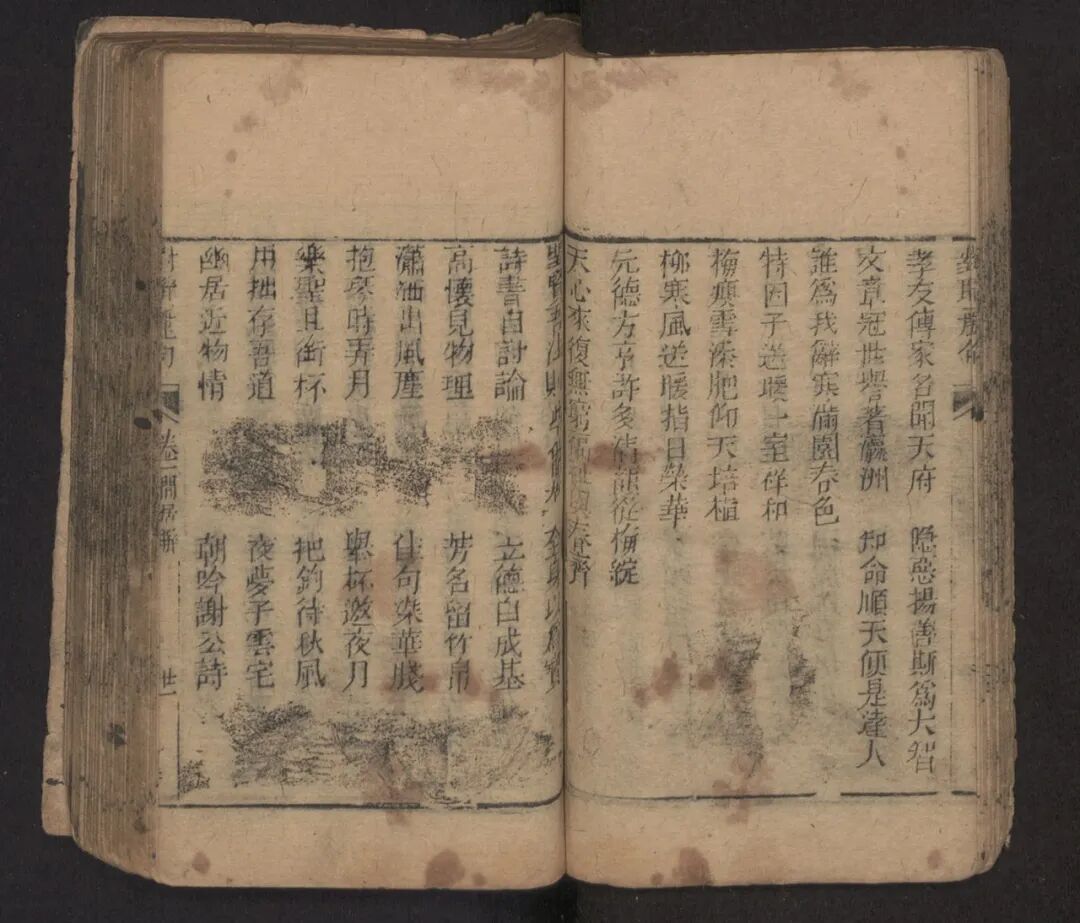 孝友傳家名聞天府 隱惡揚善斯爲大智
文章冠世譽著瀛洲 知命順天便是達人
誰爲我辭寒滿園春色
特因子送暖一室祥和
梅瘦雪添肥仰天培植
柳寒風送暖指日榮華
元德方亨許多清韻從梅綻
天心來復無窮 春齊
詩書自討論 立德自成基
高懷見物理 芳名留竹帛
瀟洒出風塵 佳句染華牋
抱琴時弄月 舉杯邀夜月
樂聖且銜杯 把釣待秋風
用拙存吾道 夜夢子雲宅
幽居近物情 朝吟謝公詩
卷一 閒居聯 廿一